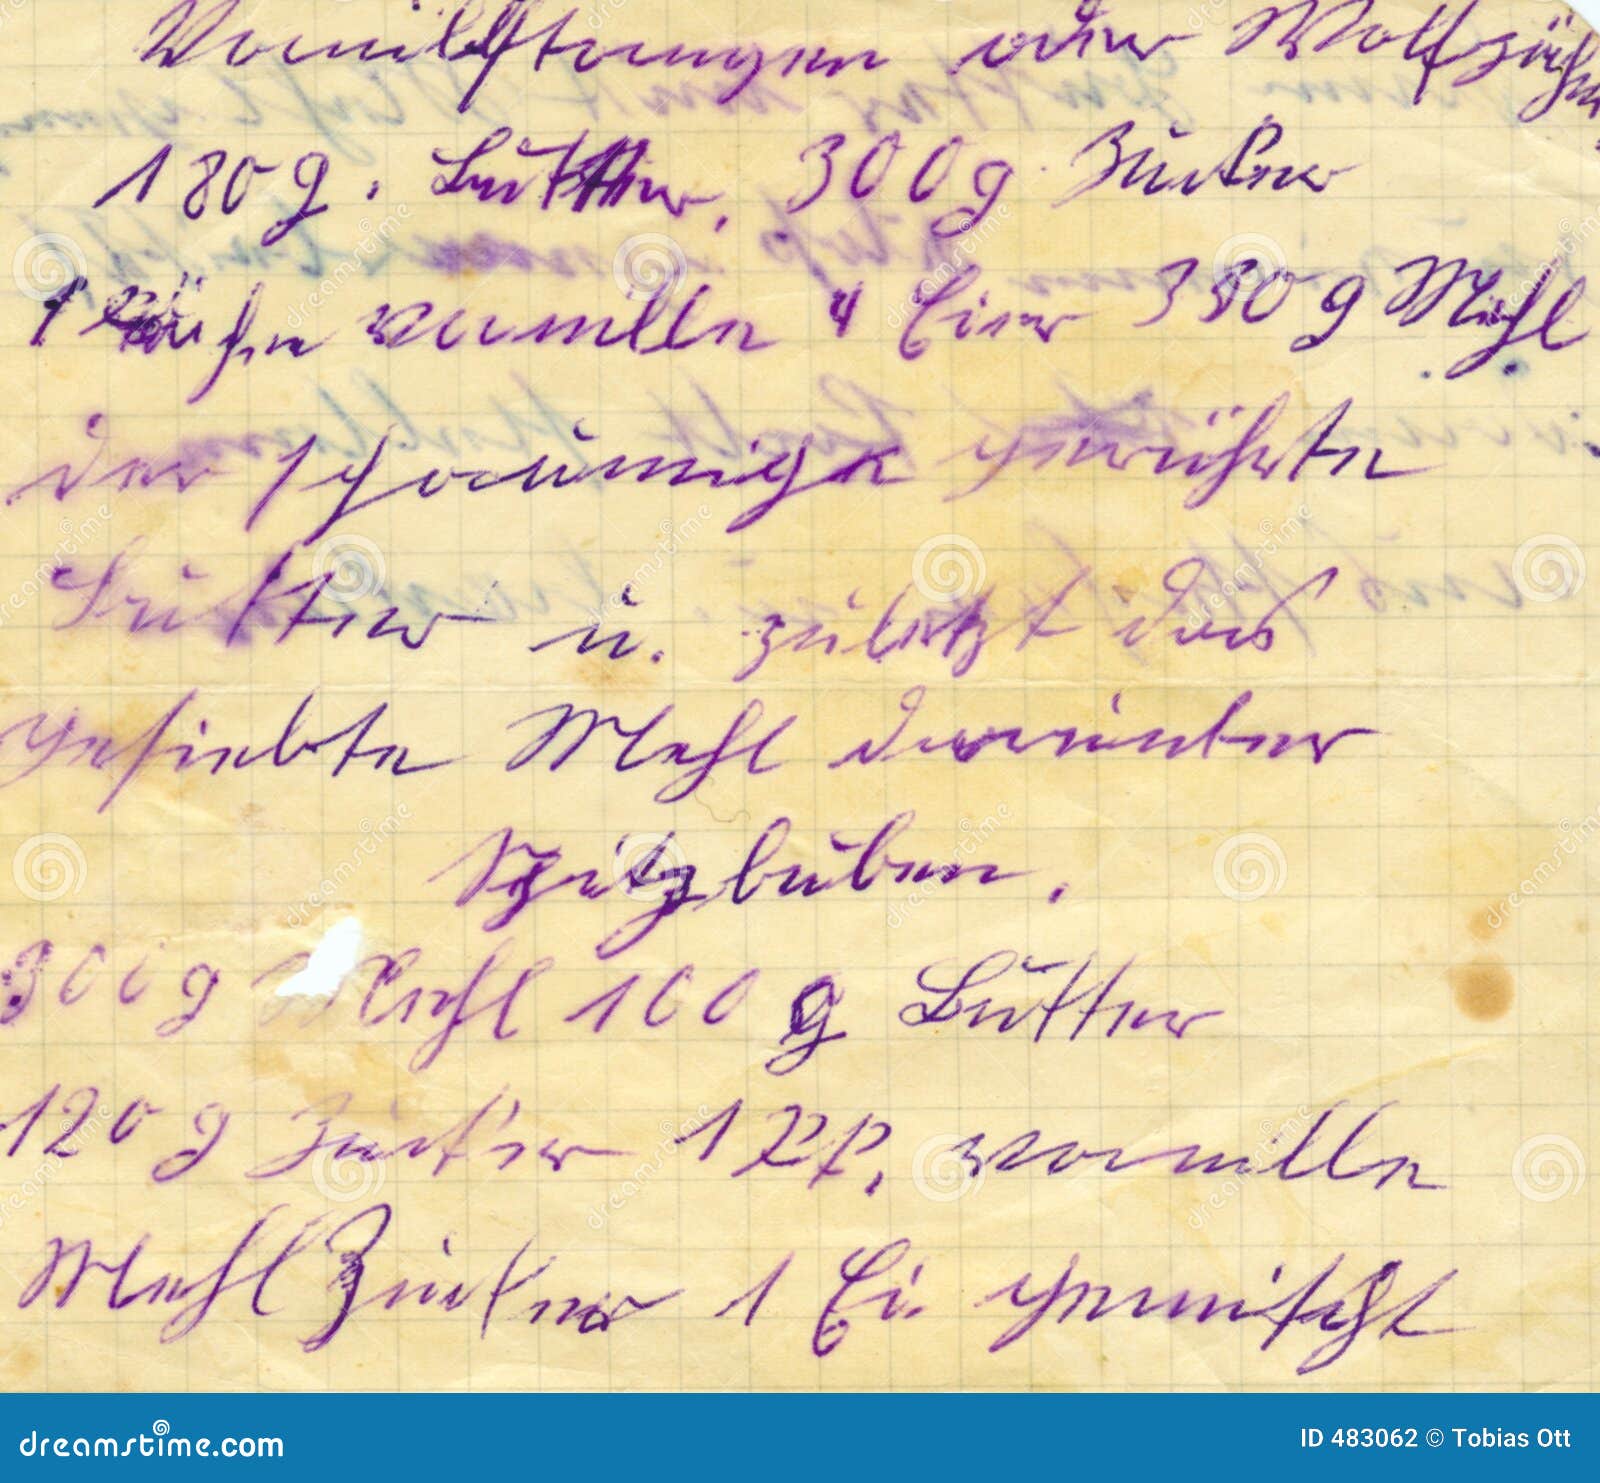 Vanillstangen oder Wolfzähn
180 g. Butter, 300 g Zucker
1 Vanille 4 Eier g Mehl
der schaumige gerührte
Butter u. zuletzt das
gesiebte Mehl darunter
Spitzbuben.
300 g Mehl 100 g Butter
120 g Zucker 1 Vanille
Mehl Zucker 1 Ei gemischt
dreamstime.com
ID 483062 © Tobias Ott